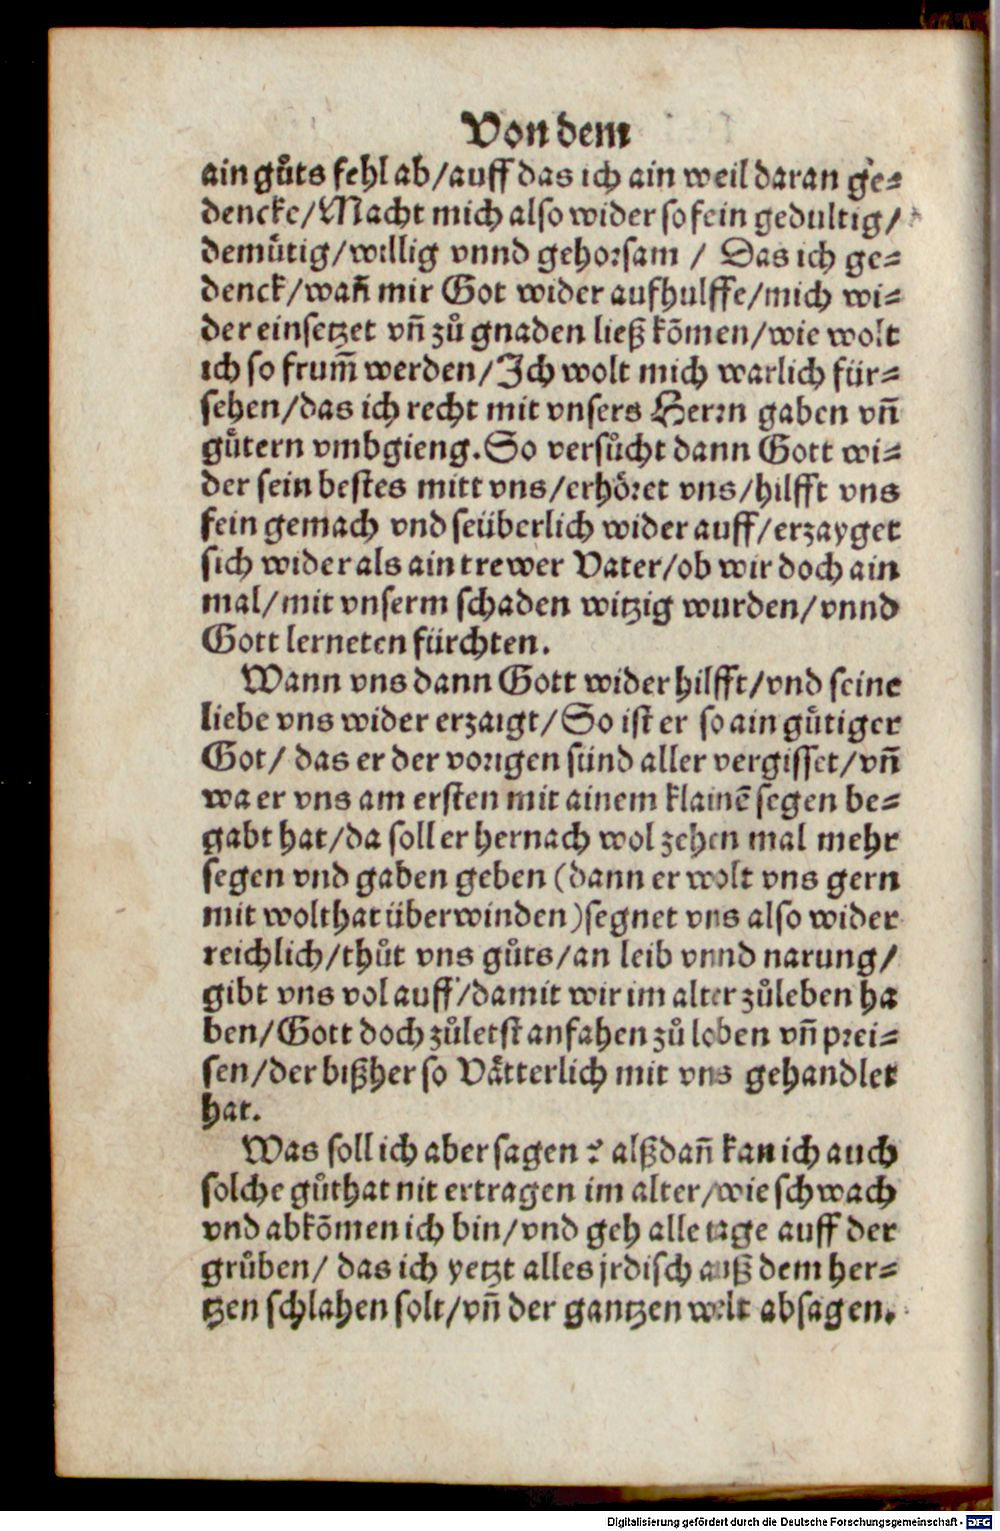 Von dem
ain gůts fehl ab/auff das ich ain weil daran ge⸗
dencke/Macht mich also wider so fein gedultig/
demuͤtig/willig vnnd gehorsam / Das ich ge⸗
denck/wañ mir Got wider aufhulffe/mich wi⸗
der einsetzet vñ zů gnaden ließ kõmen/wie wolt
ich so frum̃ werden/Ich wolt mich warlich für⸗
sehen/das ich recht mit vnsers Herrn gaben vñ
guͤtern vmbgieng. So versůcht dann Gott wi⸗
der sein bestes mitt vns/erhoͤret vns/hilfft vns
fein gemach vnd seüberlich wider auff/erzayget
sich wider als ain trewer Vater/ob wir doch ain
mal/mit vnserm schaden witzig wurden/vnnd
Gott lerneten fürchten.
Wann vns dann Gott wider hilfft/vnd seine
liebe vns wider erzaigt/So ist er so ain guͤtiger
Got/ das er der vorigen sünd aller vergisset/vñ
wa er vns am ersten mit ainem klainẽ segen be⸗
gabt hat/da soll er hernach wol zehen mal mehr
segen vnd gaben geben (dann er wolt vns gern
mit wolthat überwinden) segnet vns also wider
reichlich/thůt vns gůts/an leib vnnd narung/
gibt vns vol auff/damit wir im alter zůleben ha
ben/Gott doch zůletst anfahen zů loben vñ prei⸗
sen/der bißher so Vaͤtterlich mit vns gehandlet
hat.
Was soll ich aber sagen? alßdañ kan ich auch
solche gůthat nit ertragen im alter/wie schwach
vnd abkõmen ich bin/vnd geh alle tage auff der
grůben/ das ich yetzt alles jrdisch auß dem her⸗
tzen schlahen solt/vñ der gantzen welt absagen.
Digitalisierung gefördert durch die Deutsche Forschungsgemeinschaft - DFG